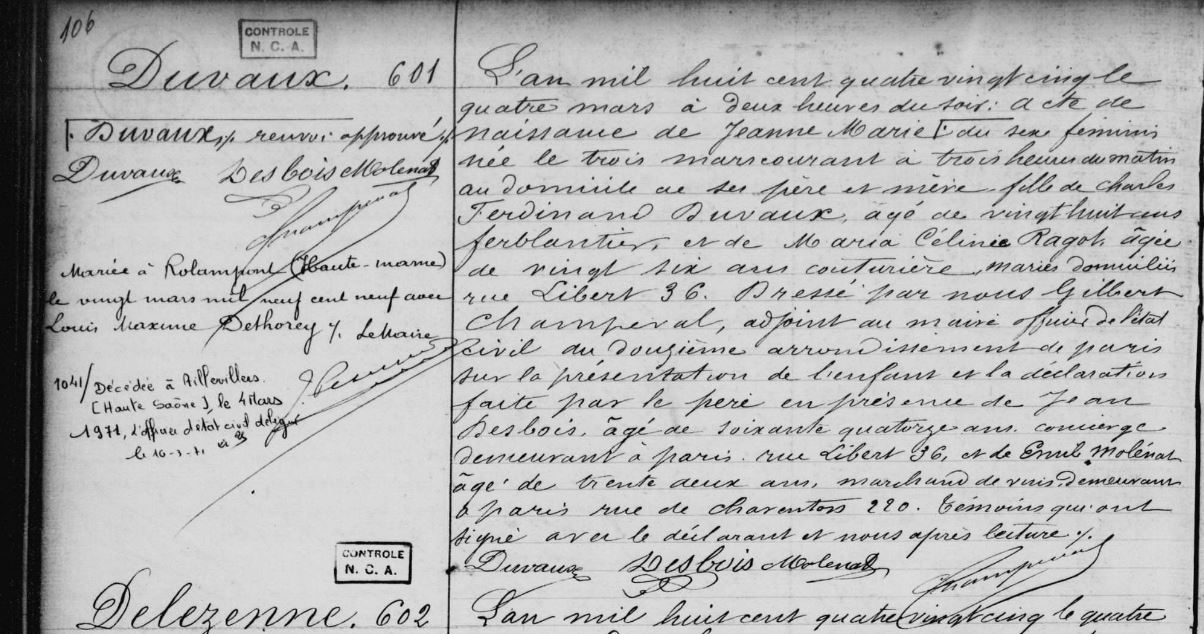 106
CONTROLE
N. C. A.
Duvaux. 601
Duvaux ./. renvoi approuvé ./.
Duvaux Desbois Molenat
Champeval
Mariée à Rolampont (Haute-marne)
le vingt mars mil neuf cent neuf avec
Louis Maxime Dethorey ./. Le Maire
1041/ Décédée à Aillevillers
(Haute Saône), le 4 Mars
1971, L'officier d'état civil délégué
le 16-3-71
CONTROLE
N. C. A.
Delezenne. 602
L'an mil huit cent quatre vingt cinq le
quatre mars à deux heures du soir: acte de
naissance de Jeanne Marie du sexe féminin
née le trois mars courant à trois heures du matin
au domicile de ses père et mère, fille de Charles
Ferdinand Duvaux, âgé de vingt huit ans
ferblantier, et de Maria Célinie Ragot, âgée
de vingt six ans couturière, mariés domiciliés
rue Libert 36. Dressé par nous Gilbert
Champeval, adjoint au maire officier de l'état
civil du douzième arrondissement de paris
sur la présentation de l'enfant et la déclaration
faite par le père en présence de Jean
Desbois, âgé de soixante quatorze ans, concierge
demeurant à paris rue Libert 36, et de Emile Molénat
âgé de trente deux ans, marchand de vins demeurant
à paris rue de charenton 220. Témoins qui ont
signé avec le déclarant et nous après lecture ./.
Duvaux Desbois Molenat Champeval
L'an mil huit cent quatre vingt cinq le quatre